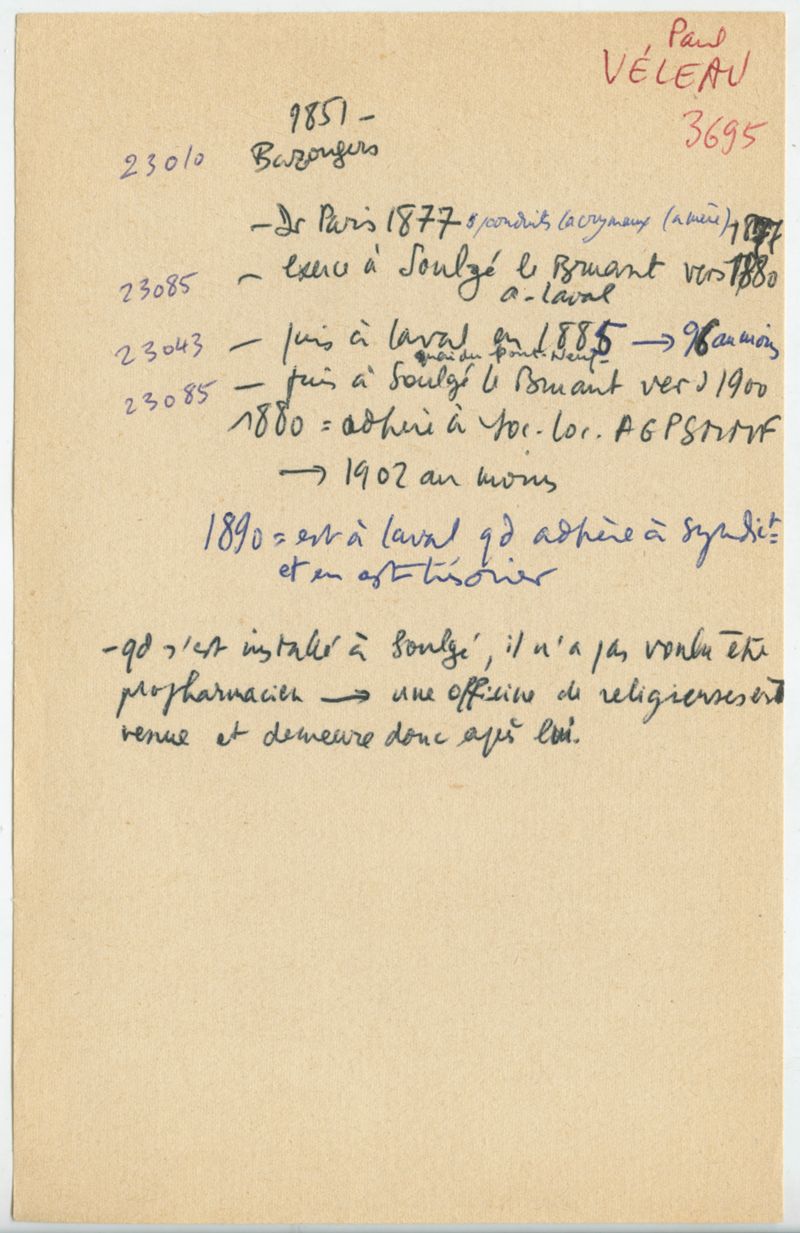 Paul
VÉLEAU
3695
1851 -
23010 Bazougers
- Dr Paris 1877 conduits lacrymaux 1877
- exerce à Soulgé le Bruant vers 1880
23085 à - Laval
23043 - puis à Laval en 1885 → 96 au moins
quai du Pont-Neuf
23085 - puis à Soulgé le Bruant vers 1900
1880 = adhère à Soc. loc. AGPSMMF
→ 1902 au moins
1890 = est à Laval qd adhère à Syndict
et en est trésorier
- qd s'est installé à Soulgé, il n'a pas voulu être
propharmacien → une officine de religieuses est
venue et demeure donc après lui.